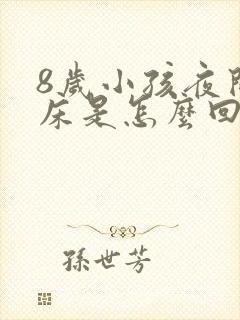 8歲小孩夜
床是怎麼回
孫世芳